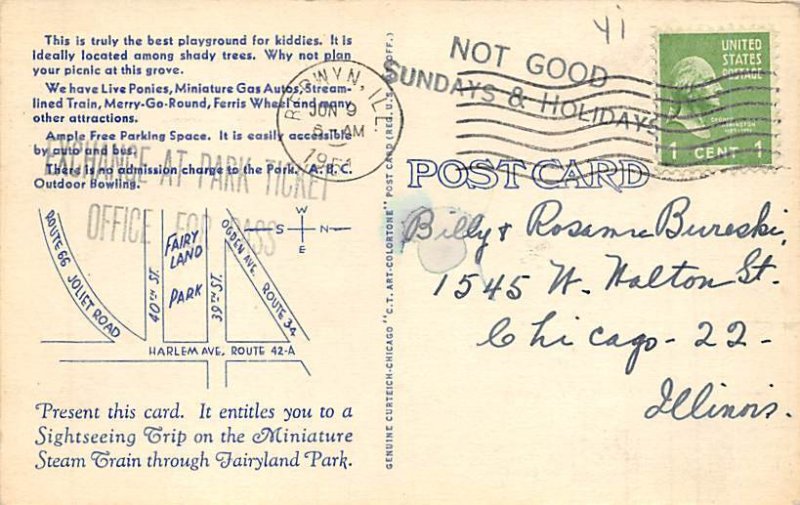 This is truly the best playground for kiddies. It is
Ideally located among shady trees. Why not plan
your picnic at this grove.
We have Live Ponies, Miniature Gas Autos, Stream-
lined Train, Merry-Go-Round, Ferris Wheel and many
other attractions.
Ample Free Parking Space. It is easily accessible
by auto and bus.
There is no admission charge to the Park. A.B.C.
Outdoor Bowling.
EXCHANGE AT PARK TICKET
OFFICE FOR PASS
ROUTE 66 JOLIET ROAD
40TH ST.
FAIRY
LAND
PARK
39TH ST.
OGDEN AVE. ROUTE 34
W
S N
E
HARLEM AVE., ROUTE 42-A
Present this card. It entitles you to a
Sightseeing Trip on the Miniature
Steam Train through Fairyland Park.
GENUINE CURTEICH-CHICAGO "C.T. ART-COLORTONE" POST CARD (REG. U.S. PAT. OFF.)
BERWYN, ILL.
JUN 9
AM
1951
NOT GOOD
SUNDAYS & HOLIDAYS
UNITED
STATES
POSTAGE
1 CENT 1
POST CARD
Billy &
1545 W. Walton St.
Chicago-22-
Illinois.